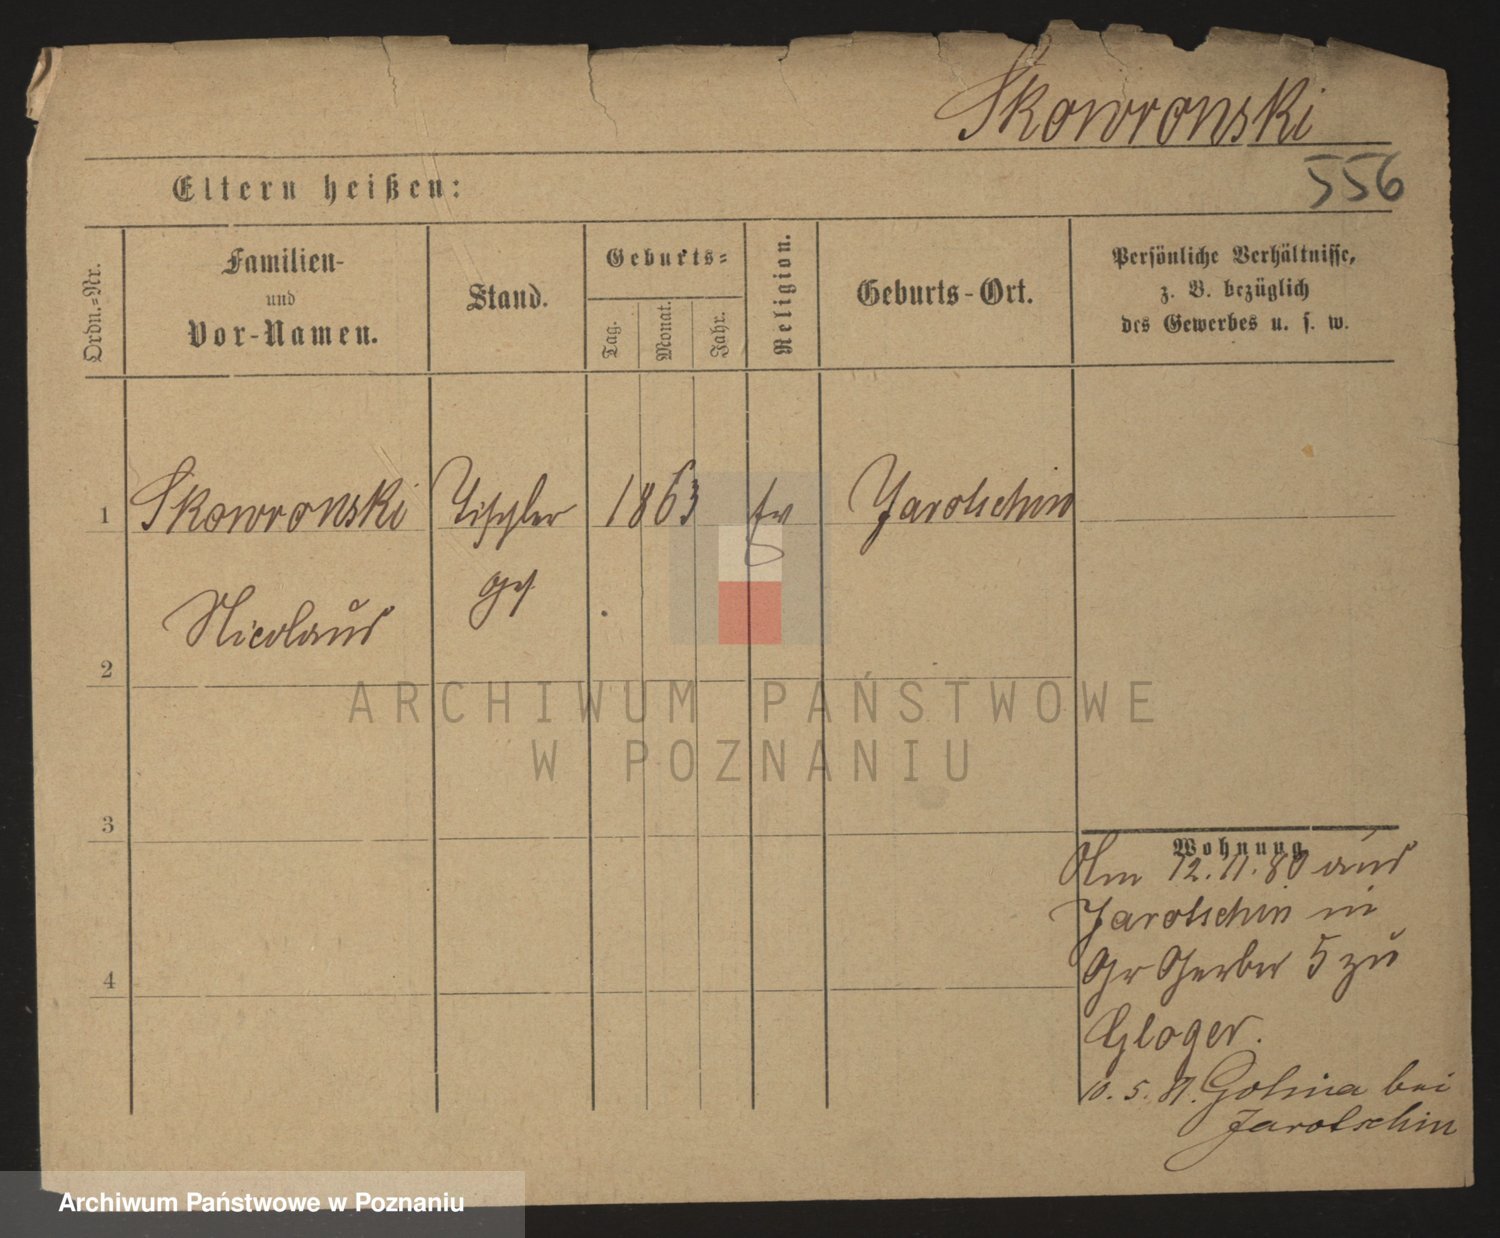 Skowronski
556
Eltern heißen:
Ordn.-Nr.
Familien-
und
Vor-Namen.
Stand.
Geburts-
Tag.
Monat.
Jahr.
Religion.
Geburts-Ort.
Persönliche Verhältnisse,
z. B. bezüglich
des Gewerbes u. s. w.
1 Skowronski Tischler 1863 Ev Jarotschin
Nicolaus ges
2
ARCHIWUM PAŃSTWOWE
W POZNANIU
3
Wohnung
Am 12.11.80 aus
Jarotschin in
4 Gr Gerber 5 zu
Gloger.
10. 5. 81. Golina bei
Jarotschin
Archiwum Państwowe w Poznaniu